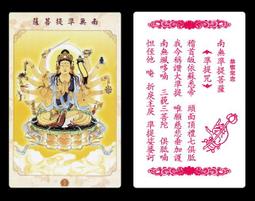 南無準提菩薩
恭敬常念
南無準提菩薩
準提咒
稽首皈依蘇悉帝 頭面頂禮七俱胝
我今稱讚大準提 唯願慈悲垂加護
南無颯哆喃 三藐三菩陀 俱胝喃
怛姪他 唵 折戾主戾 準提娑婆訶